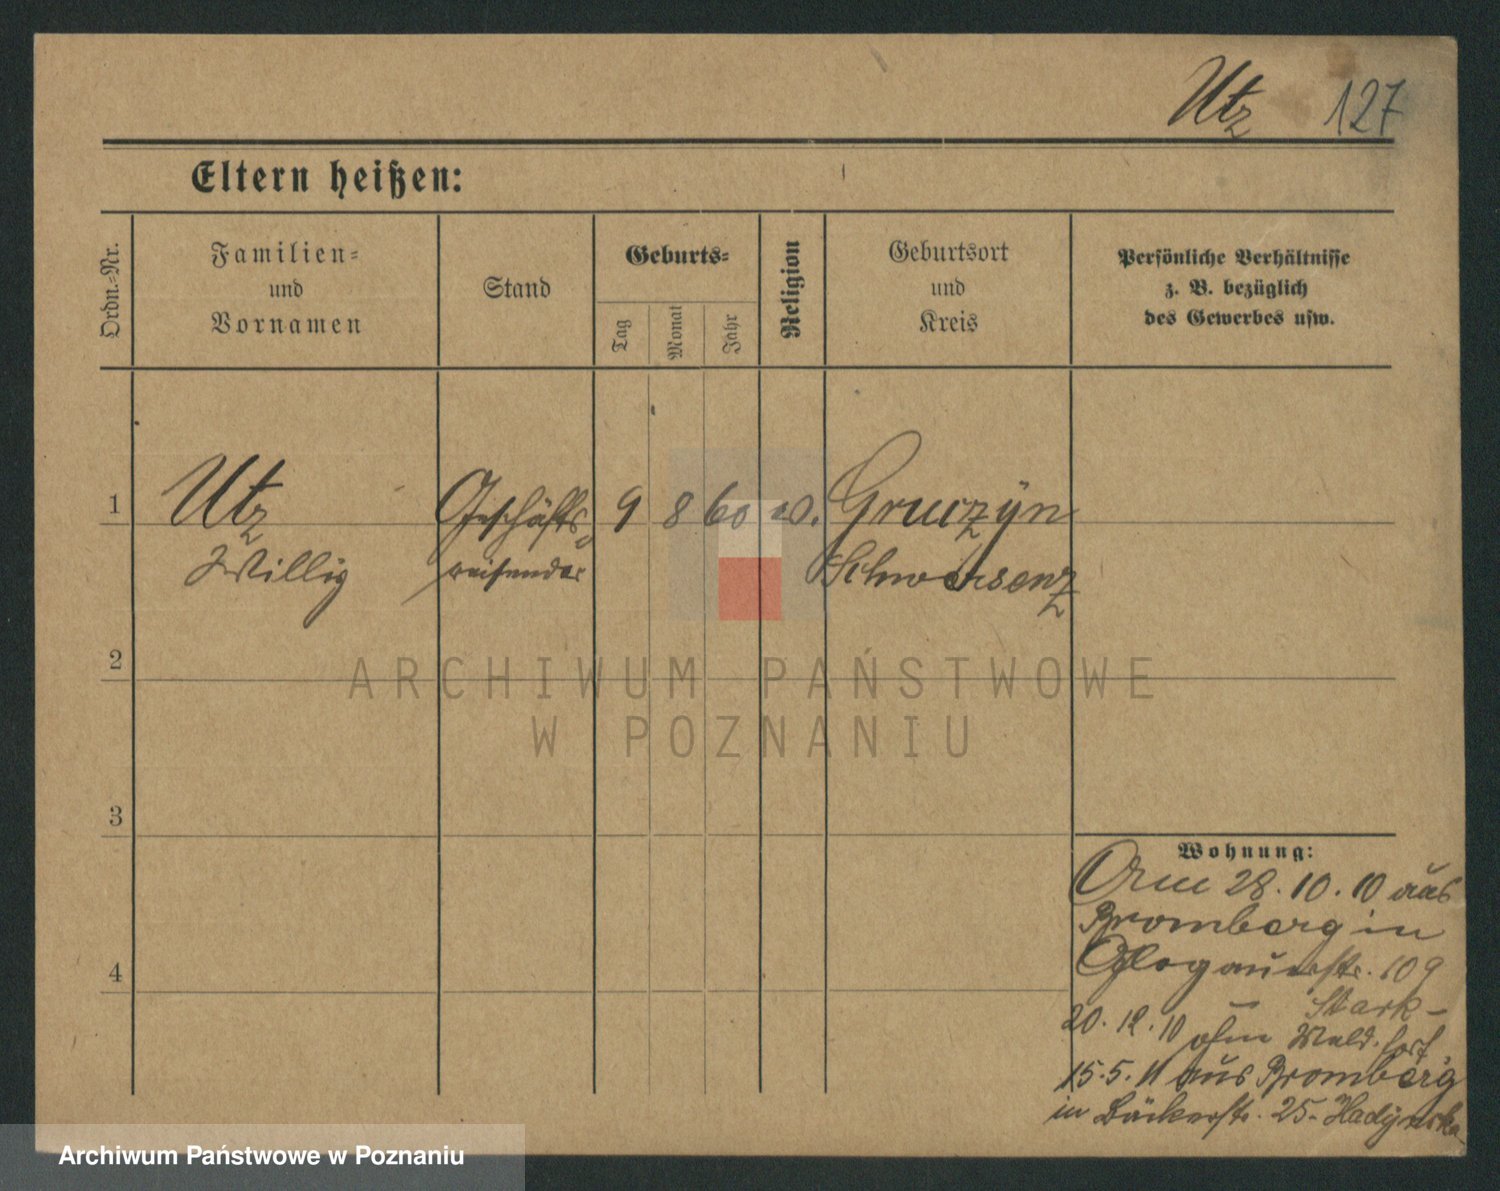 Utz 127
Eltern heißen:
Ordn.-Nr.
Familien-
und
Vornamen
Stand
Geburts-
Tag
Monat
Jahr
Religion
Geburtsort
und
Kreis
Persönliche Verhältnisse
z. B. bezüglich
des Gewerbes usw.
1
Utz Geschäfts- 9 8 60 Gruczÿn
Willig reisender Schwersenz
2
ARCHIWUM PAŃSTWOWE
W POZNANIU
3
4
Wohnung:
28.10.10 aus
Bromberg in
Glogauerstr. 109
Stark-
20.12.10 ohn Meld. fort
15.5.11 aus Bromberg
in Bäckerstr. 25-
Archiwum Państwowe w Poznaniu